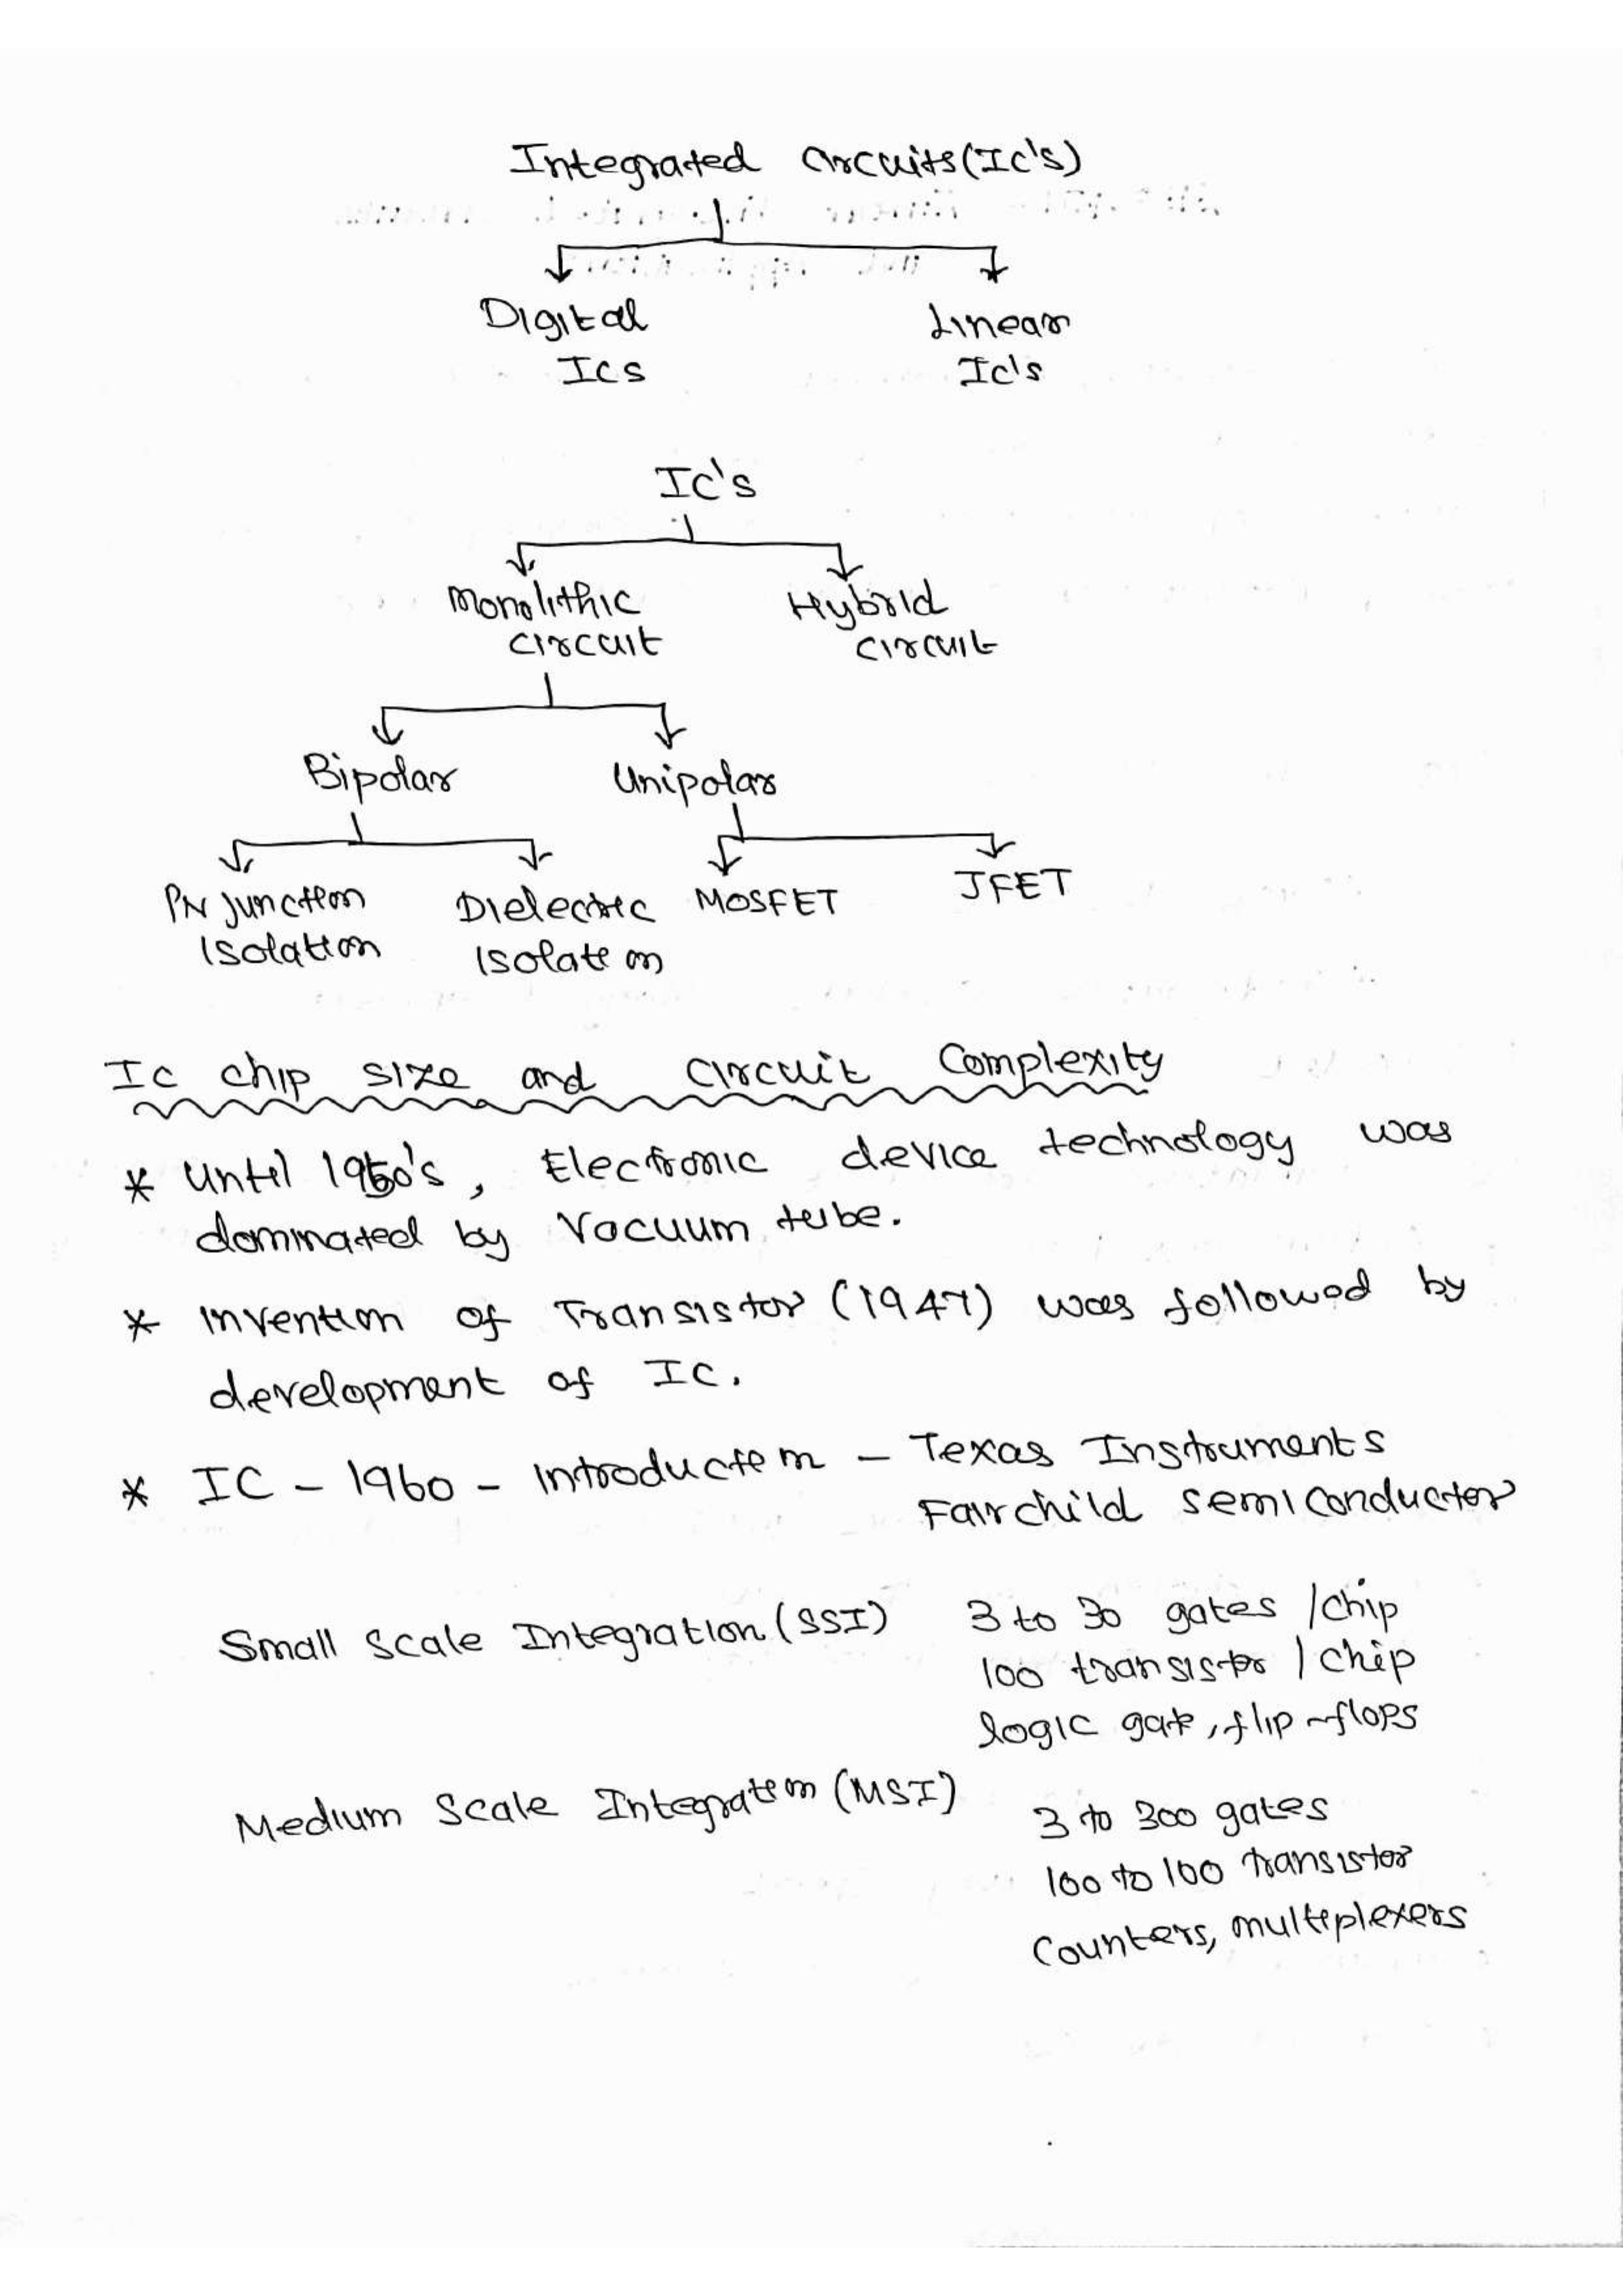 Integrated Circuits(Ic's)
Digital Linear
ICs Ic's
IC's
Monolithic Hybrid
circuit circuit
Bipolar Unipolar
PN Junction Dielectric MOSFET JFET
Isolation Isolation
Ic chip size and Circuit Complexity
* Until 1950's, Electronic device technology was
dominated by Vacuum tube.
* Invention of Transistor (1947) was followed by
development of IC.
* IC - 1960 - Introduction - Texas Instruments
Fairchild semiconductor
Small Scale Integration (SSI) 3 to 30 gates /chip
100 transistor / chip
logic gate, flip-flops
Medium Scale Integration (MSI) 3 to 300 gates
100 to 100 transistor
Counters, multiplexers